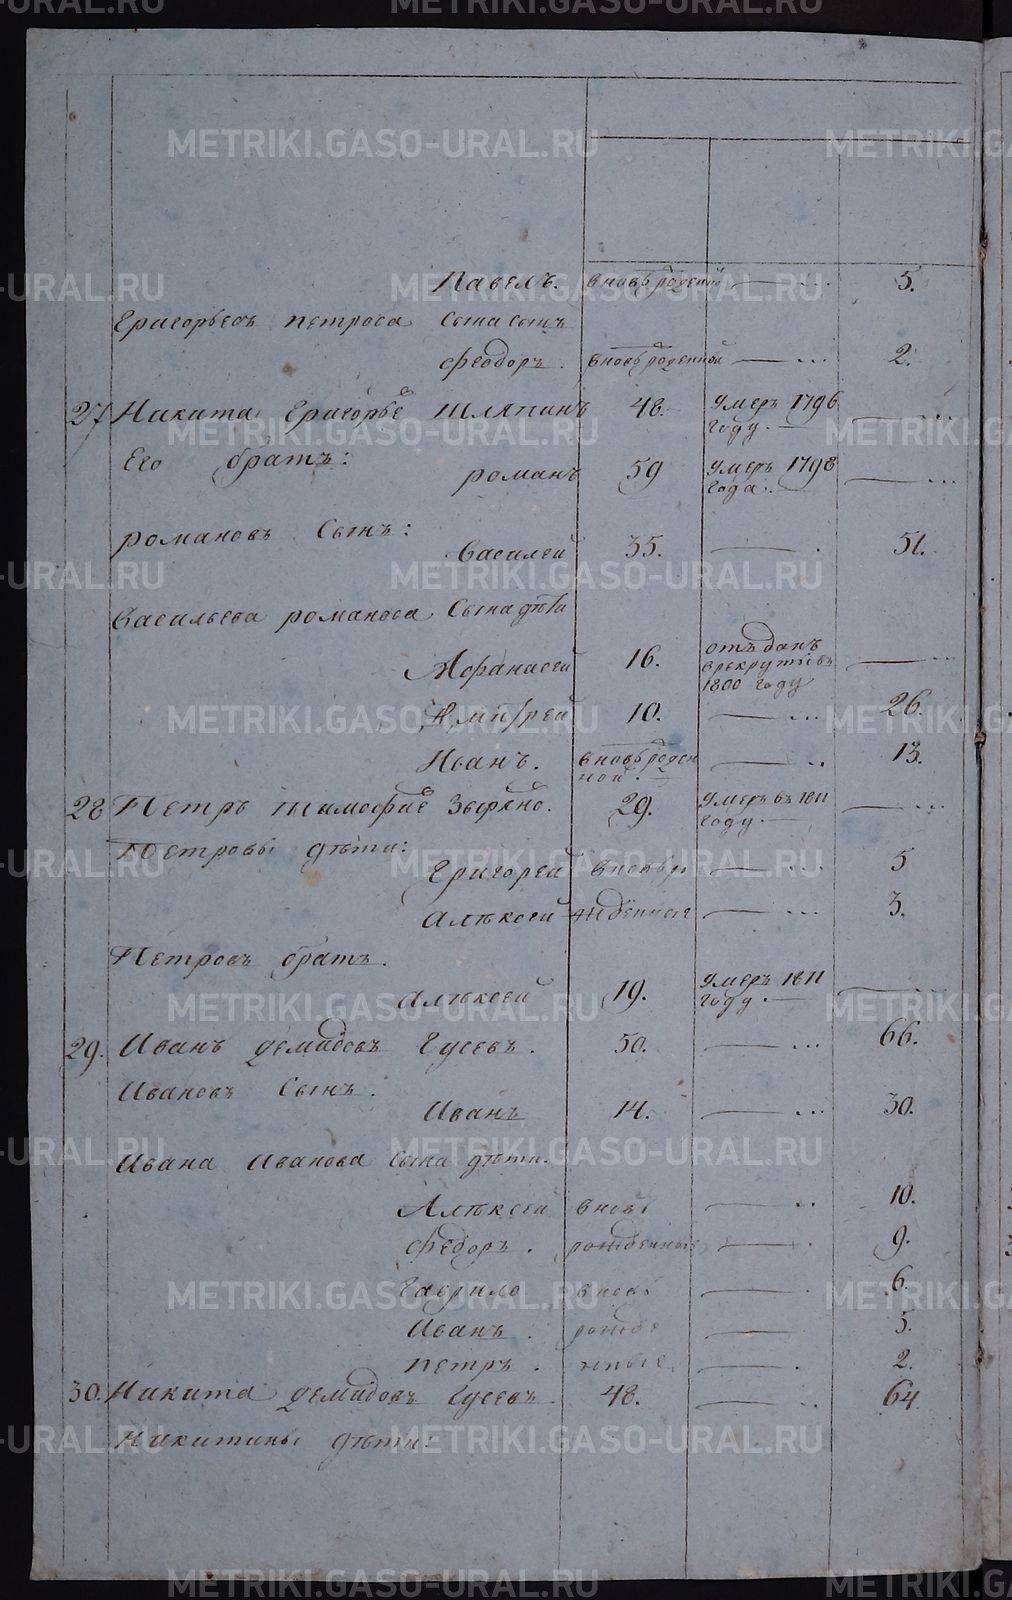 Павелъ. вновь роденной — ... 5.
Григорьевъ петрова сына сынъ
Феодоръ. вновь роденной — ... 2.
27 Никита Григорьевъ Шляпинъ 48. умеръ 1796 — ...
году. —
Его братъ:
романъ 59 умеръ 1798 — ...
года. —
романовъ сынъ:
Василей 35. — . 51.
Васильева романова сына дѣти
Афанасей 16. отъданъ — ...
врекруты въ
1800 году
Андрей 10. — ... 26.
Иванъ. вновь роден — .. 13.
ной. —
28 Петръ тимофѣе умеръ въ 1811 29. — ...
году. —
Петровы дѣти:
Григорей вновьро — ... 5
Алѣксей жденные — ... 3.
Петровъ братъ.
Алѣксей 19. умеръ 1811 — ...
году. —
29. Иванъ демидовъ Гусевъ. 50. — ... 66.
Ивановъ сынъ.
Иванъ 14. — ... 30.
Ивана Иванова сына дѣти.
Алѣксей вновь — .. 10.
Федоръ. рожденные — . 9.
Гаврило вновь — . 6.
Иванъ. рожде — 5.
петръ. нные. — . 2.
30. Никита демидовъ Гусевъ. 48. — .. 64.
Никитины дѣти:
METRIKI.GASO-URAL.RU